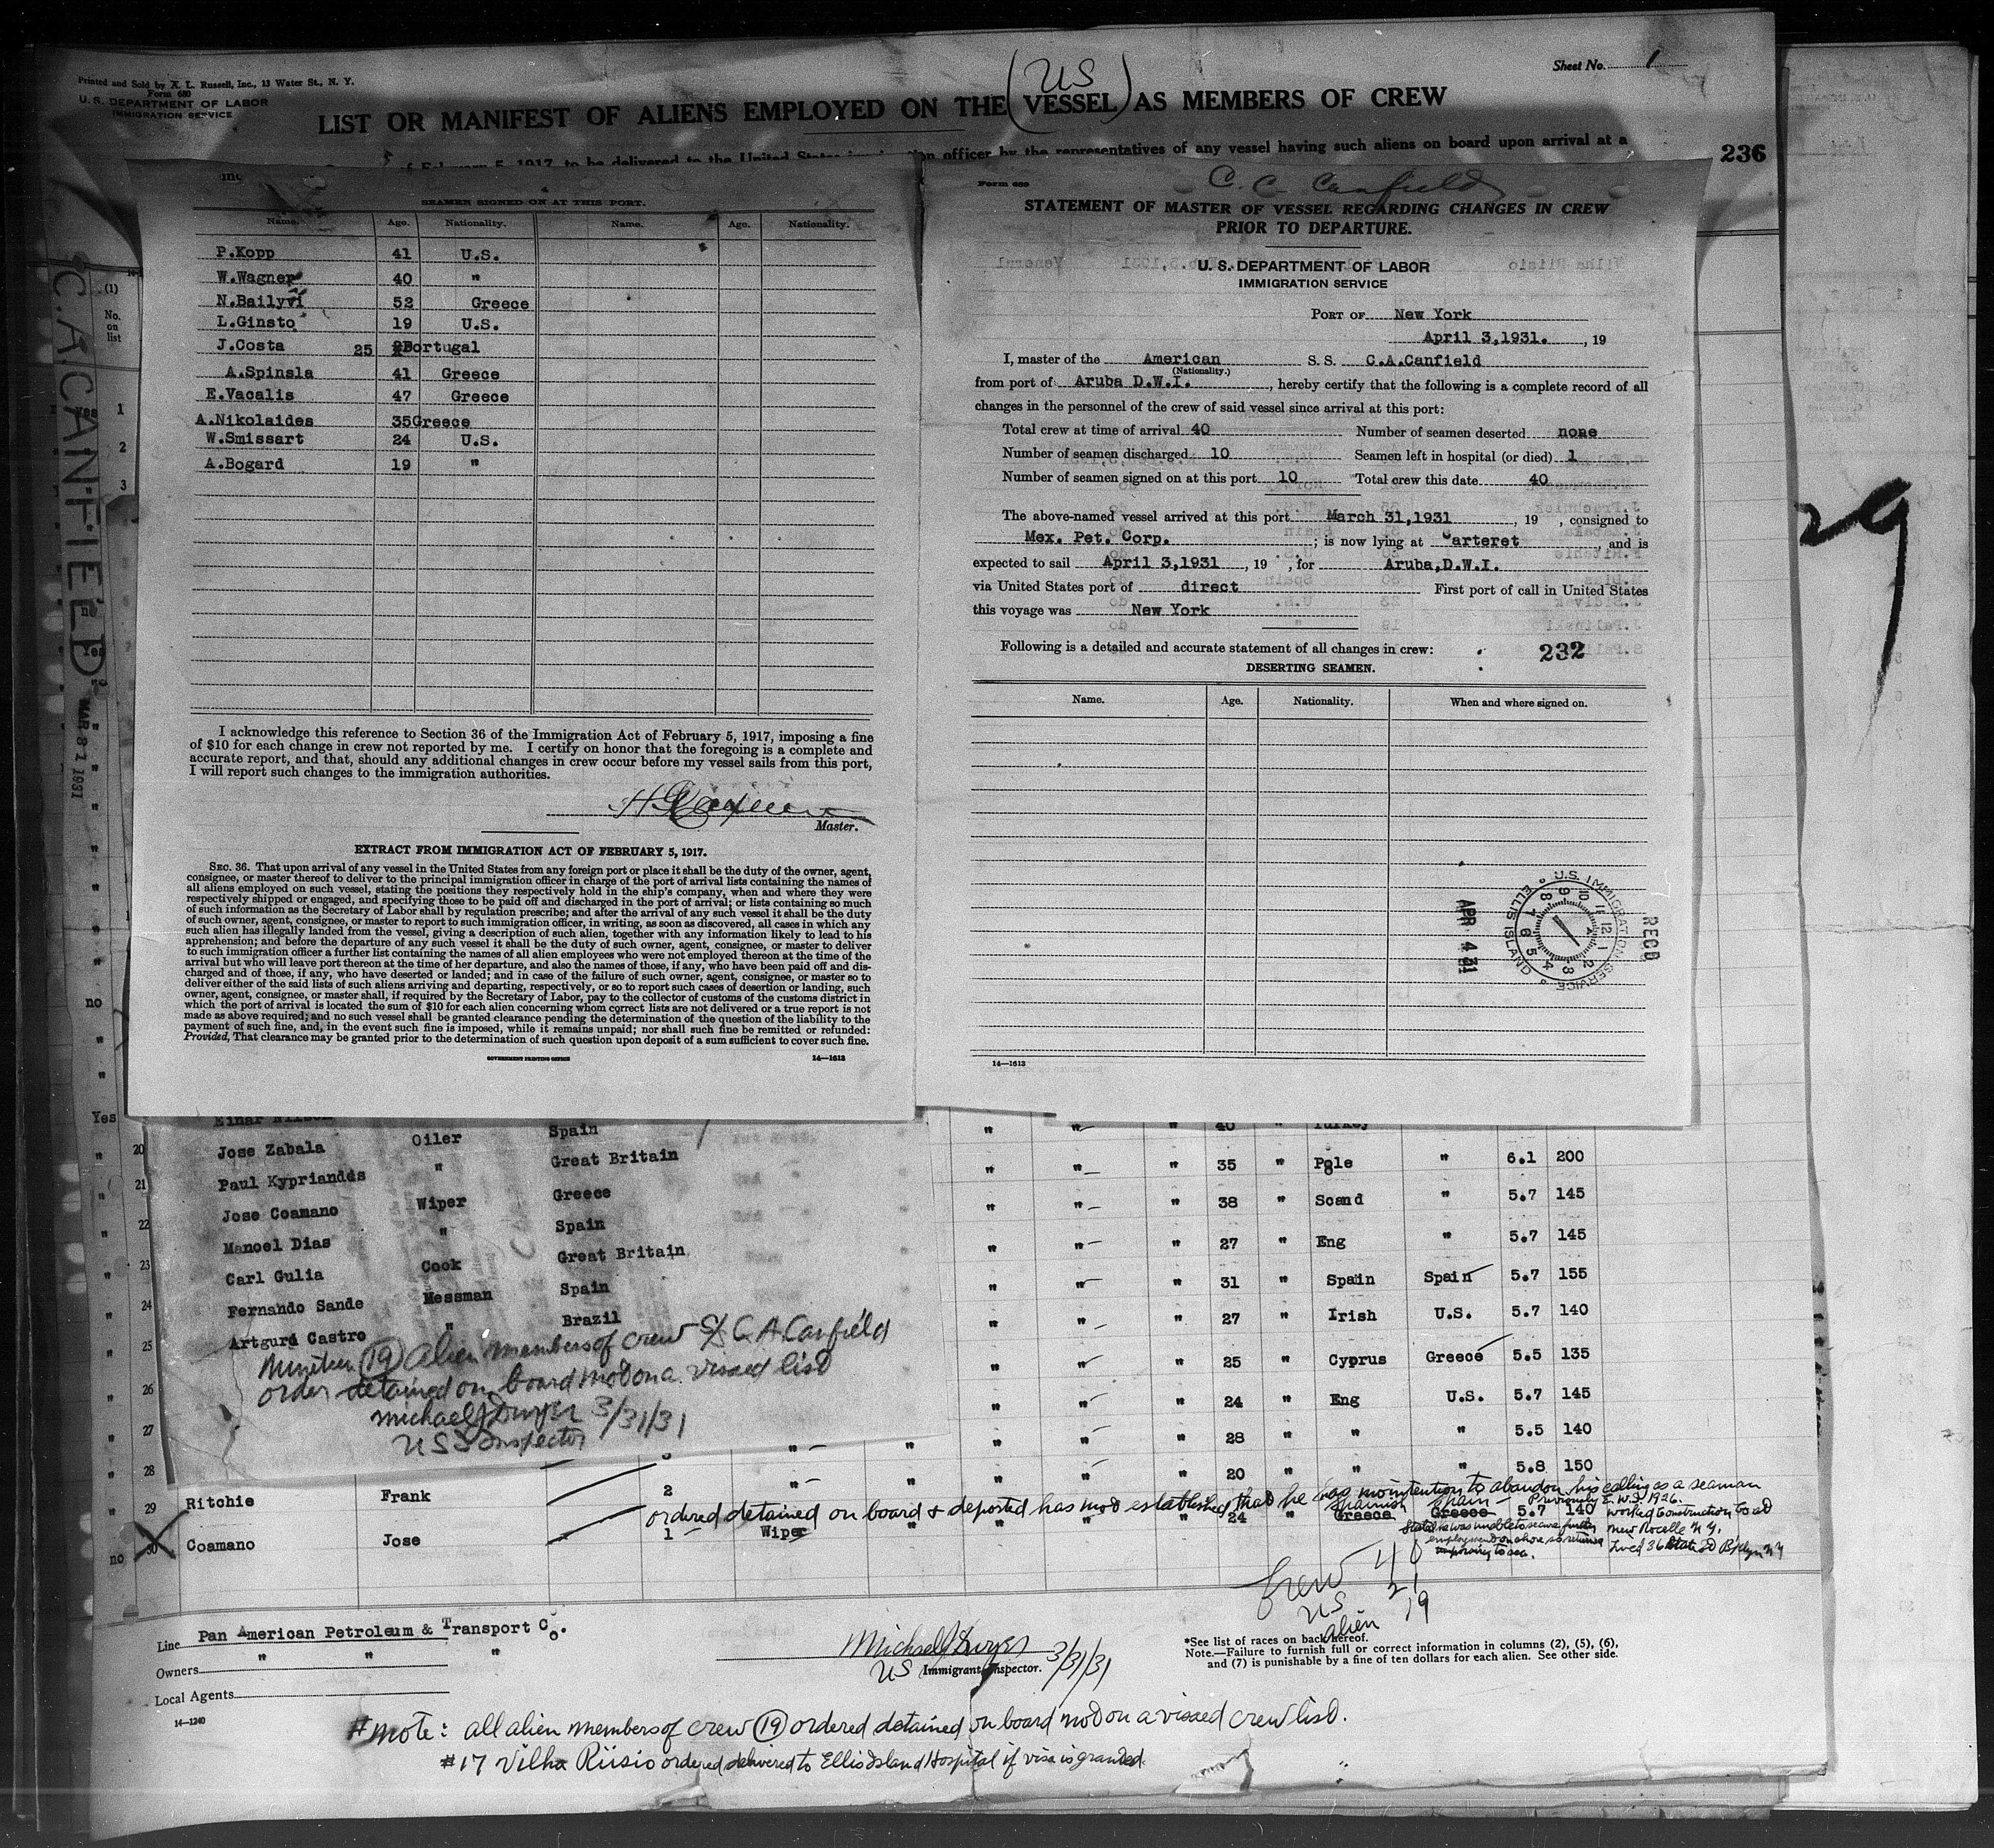 Printed and Sold by X. L. Russell, Inc., 13 Water St., N. Y.
Form 680
U. S. DEPARTMENT OF LABOR
IMMIGRATION SERVICE
Sheet No. 1
(US)
LIST OR MANIFEST OF ALIENS EMPLOYED ON THE VESSEL AS MEMBERS OF CREW
of February 5, 1917, to be delivered to the United States officer by the representatives of any vessel having such aliens on board upon arrival at a
236
29
C.A.CANFIELD
MAR 31 1931
(1)
No.
on
list
yes 1
2
3
SEAMEN SIGNED ON AT THIS PORT.
Name. Age. Nationality. Name. Age. Nationality.
P.Kopp 41 U.S.
W.Wagner 40 "
N.Bailyvi 52 Greece
L.Ginsto 19 U.S.
J.Costa 25 Portugal
A.Spinsla 41 Greece
E.Vacalis 47 Greece
A.Nikolaides 35 Greece
W.Smissart 24 U.S.
A.Bogard 19 "
I acknowledge this reference to Section 36 of the Immigration Act of February 5, 1917, imposing a fine
of $10 for each change in crew not reported by me. I certify on honor that the foregoing is a complete and
accurate report, and that, should any additional changes in crew occur before my vessel sails from this port,
I will report such changes to the immigration authorities.
Master.
EXTRACT FROM IMMIGRATION ACT OF FEBRUARY 5, 1917.
SEC. 36. That upon arrival of any vessel in the United States from any foreign port or place it shall be the duty of the owner, agent,
consignee, or master thereof to deliver to the principal immigration officer in charge of the port of arrival lists containing the names of
all aliens employed on such vessel, stating the positions they respectively hold in the ship's company, when and where they were
respectively shipped or engaged, and specifying those to be paid off and discharged in the port of arrival; or lists containing so much
of such information as the Secretary of Labor shall by regulation prescribe; and after the arrival of any such vessel it shall be the duty
of such owner, agent, consignee, or master to report to such immigration officer, in writing, as soon as discovered, all cases in which any
such alien has illegally landed from the vessel, giving a description of such alien, together with any information likely to lead to his
apprehension; and before the departure of any such vessel it shall be the duty of such owner, agent, consignee, or master to deliver
to such immigration officer a further list containing the names of all alien employees who were not employed thereon at the time of the
arrival but who will leave port thereon at the time of her departure, and also the names of those, if any, who have been paid off and dis-
charged and of those, if any, who have deserted or landed; and in case of the failure of such owner, agent, consignee, or master so to
deliver either of the said lists of such aliens arriving and departing, respectively, or so to report such cases of desertion or landing, such
owner, agent, consignee, or master shall, if required by the Secretary of Labor, pay to the collector of customs of the customs district in
which the port of arrival is located the sum of $10 for each alien concerning whom correct lists are not delivered or a true report is not
made as above required; and no such vessel shall be granted clearance pending the determination of the question of the liability to the
payment of such fine, and, in the event such fine is imposed, while it remains unpaid; nor shall such fine be remitted or refunded:
Provided, That clearance may be granted prior to the determination of such question upon deposit of a sum sufficient to cover such fine.
GOVERNMENT PRINTING OFFICE 14—1613
Form 689
C. C. Canfield
STATEMENT OF MASTER OF VESSEL REGARDING CHANGES IN CREW
PRIOR TO DEPARTURE.
U. S. DEPARTMENT OF LABOR
IMMIGRATION SERVICE
PORT OF New York
April 3,1931. , 19
I, master of the American S. S. C.A.Canfield
(Nationality.)
from port of Aruba D.W.I. , hereby certify that the following is a complete record of all
changes in the personnel of the crew of said vessel since arrival at this port:
Total crew at time of arrival 40 Number of seamen deserted none
Number of seamen discharged 10 Seamen left in hospital (or died) 1
Number of seamen signed on at this port 10 Total crew this date 40
The above-named vessel arrived at this port March 31,1931 , 19 , consigned to
Mex. Pet. Corp. ; is now lying at Carteret and is
expected to sail April 3,1931 , 19 , for Aruba,D.W.I.
via United States port of direct First port of call in United States
this voyage was New York
Following is a detailed and accurate statement of all changes in crew: 232
DESERTING SEAMEN.
Name. Age. Nationality. When and where signed on.
RECD
U.S. IMMIGRATION SERVICE ELLIS ISLAND
APR 4 31
14—1613
no
Yes
Jose Zabala Oiler Spain
Paul Kypriandds " Great Britain
Jose Coamano Wiper Greece
Manoel Dias " Spain
Carl Gulia Cook Great Britain
Fernando Sande Messman Spain
Arturi Castro " Brazil
Nineteen (19) alien members of crew S/S C.A.Canfield
order detained on board not on a vissed list
Michael J Dwyer 3/31/31
US Inspector
20
21
22
23
24
25
26
27
28
" " " 40 " Turkey
" " " 35 " Pole " 6.1 200
" " " 38 " Scand " 5.7 145
" " " 27 " Eng " 5.7 145
" " " 31 " Spain Spain 5.7 155
" " " 27 " Irish U.S. 5.7 140
" " " 25 " Cyprus Greece 5.5 135
" " " 24 " Eng U.S. 5.7 145
" " " 28 " " " 5.5 140
" " " 20 " " " 5.8 150
29 Ritchie Frank 2
ordered detained on board & deported has not established that he has no intention to abandon his calling as a seaman
no 30 Coamano Jose 1 Wiper " " " 24 " Greece Spanish Greece Spain 5.7 140
Previously E.W.I. 1926.
worked Construction
New Rocelle N.Y.
Lived 36 State St Bklyn NY
Crew 40
US 21
alien 19
Line Pan American Petroleum & Transport Co.
Owners " " "
Local Agents
14—1240
Michael J Dwyer
US Immigrant Inspector. 3/31/31
*See list of races on back hereof.
Note.—Failure to furnish full or correct information in columns (2), (5), (6),
and (7) is punishable by a fine of ten dollars for each alien. See other side.
# Note: all alien members of crew (19) ordered detained on board not on a vissed crew list.
#17 Vilha Riisio ordered delivered to Ellis Island Hospital if visa is granted.